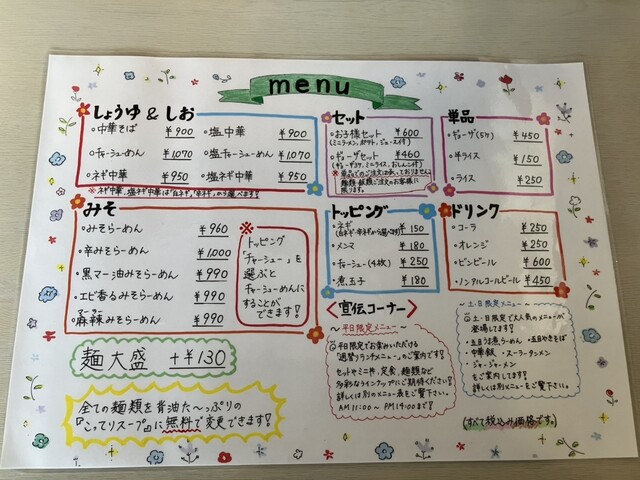 menu
しょうゆ & しお
・中華そば ¥900
・チャーシューめん ¥1,070
・ネギ中華 ¥950
・塩中華 ¥900
・塩チャーシューめん ¥1,070
・塩ネギ中華 ¥950
※ネギ中華、塩ネギ中華は「白ネギ」「辛ネギ」から選べます?
みそ
・みそらーめん ¥960
・辛みそらーめん ¥1,000
・黒マー油みそらーめん ¥990
・エビ香るみそらーめん ¥990
・麻辣みそらーめん ¥990
マーラー
※
トッピング
「チャーシュー」を
選ぶと
チャーシューめんに
することが
できます!
麺大盛 +¥130
全ての麺類を背油た〜っぷりの
『こってりスープ』に無料で変更できます!
セット
・お子様セット ¥600
(ミニラーメン、ポテト、ジュース付)
・ギョーザセット ¥460
(ギョーザ3ケ、ミニライス、おしんこ付)
※単品でのご注文は承っておりません。
麺類・飯類ご注文のお客様に
限ります。
単品
・ギョーザ(5ケ) ¥450
・半ライス ¥150
・ライス ¥250
トッピング
・ネギ ¥150
(白ネギ・辛ネギから選べます)
・メンマ ¥180
・チャーシュー(4枚) ¥250
・煮玉子 ¥180
ドリンク
・コーラ ¥250
・オレンジ ¥250
・ビンビール ¥600
・ノンアルコールビール ¥450
<宣伝コーナー>
〜平日限定メニュー〜
◎平日限定でお楽しみいただける
「週替りランチメニュー」のご案内です!
セットやミニ丼、定食、麺類など
多彩なラインナップにご期待ください!
詳しくは別のメニュー表をご覧下さい。
AM11:00〜PM14:00まで!
〜土・日限定メニュー〜
◎土・日限定で大人気のメニューが
登場してます!
・五目うま煮らーめん ・五目やきそば
・中華飯 ・スーラータンメン
・ジャージャーメン
をご案内してます!
詳しくは別メニューをご覧下さい。
(すべて税込み価格です。)